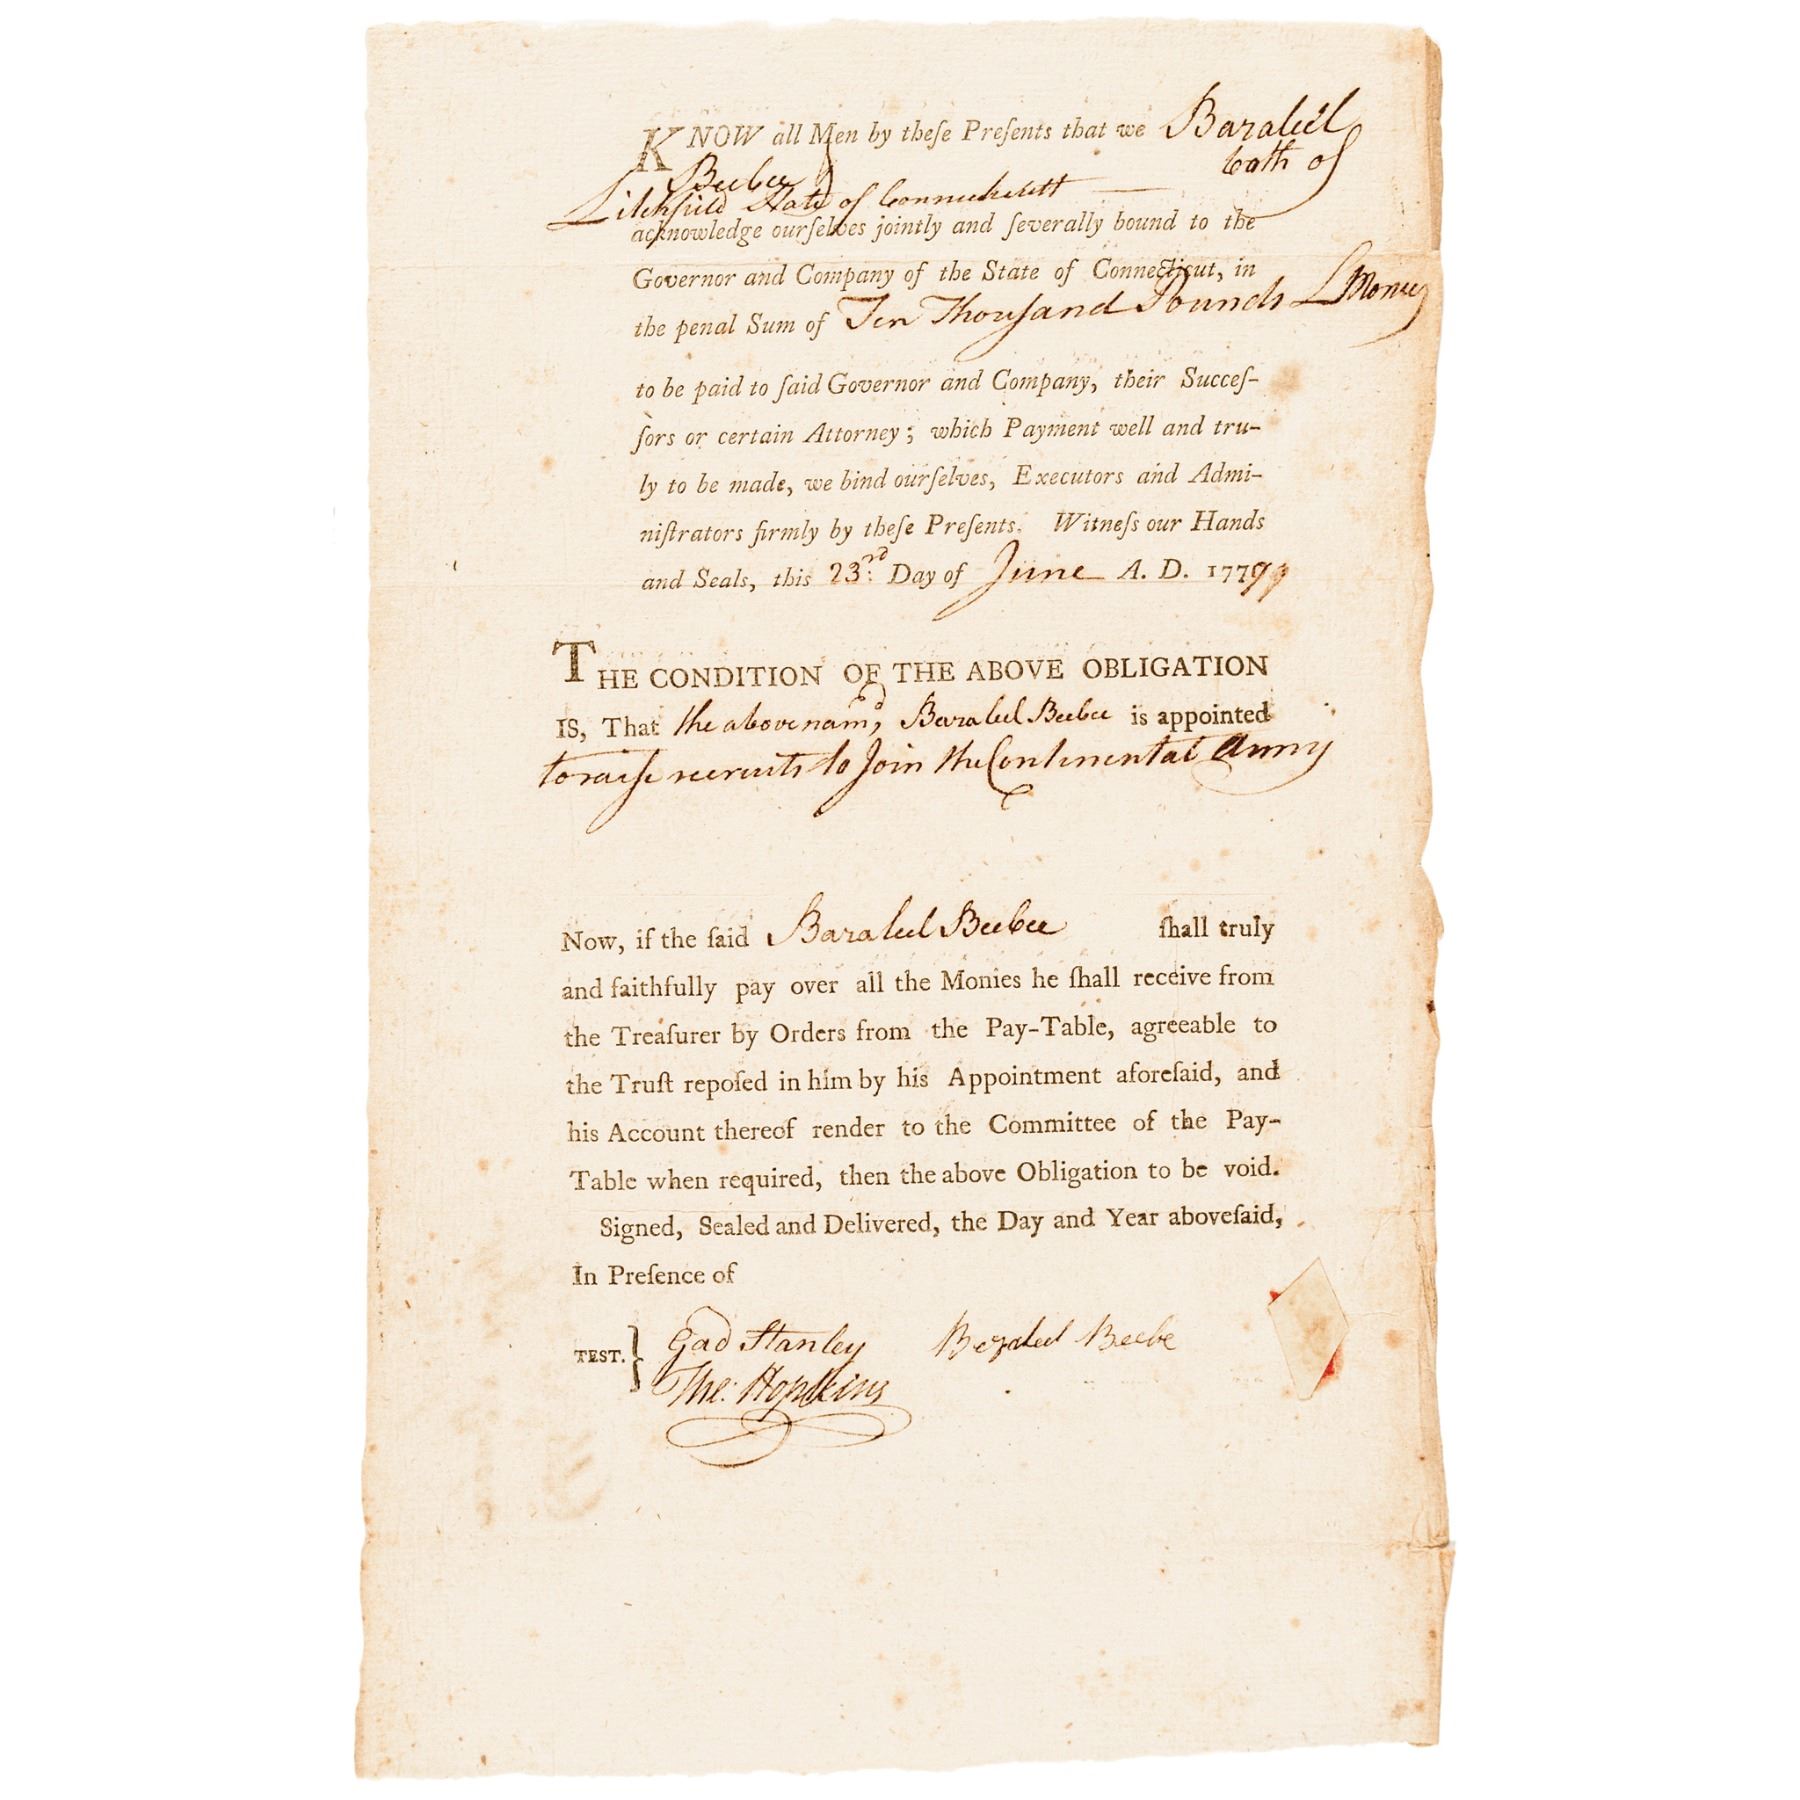 KNOW all Men by theſe Preſents that we Bazaleel
Beebee both of
Litchfield State of Connecticutt
acknowledge ourſelves jointly and ſeverally bound to the
Governor and Company of the State of Connecticut, in
the penal Sum of Ten Thouſand Pounds L Money
to be paid to ſaid Governor and Company, their Succeſ-
ſors or certain Attorney; which Payment well and tru-
ly to be made, we bind ourſelves, Executors and Admi-
niſtrators firmly by theſe Preſents. Witneſs our Hands
and Seals, this 23rd: Day of June A. D. 1779
THE CONDITION OF THE ABOVE OBLIGATION
IS, That the above namd, Bazaleel Beebee is appointed
to raise recruits to Join the Continental Army
Now, if the ſaid Bazaleel Beebee ſhall truly
and faithfully pay over all the Monies he ſhall receive from
the Treaſurer by Orders from the Pay-Table, agreeable to
the Truſt repoſed in him by his Appointment aforeſaid, and
his Account thereof render to the Committee of the Pay-
Table when required, then the above Obligation to be void.
Signed, Sealed and Delivered, the Day and Year aboveſaid,
In Preſence of
TEST. } Gad Stanley Bezaleel Beebe
The: Hopkins